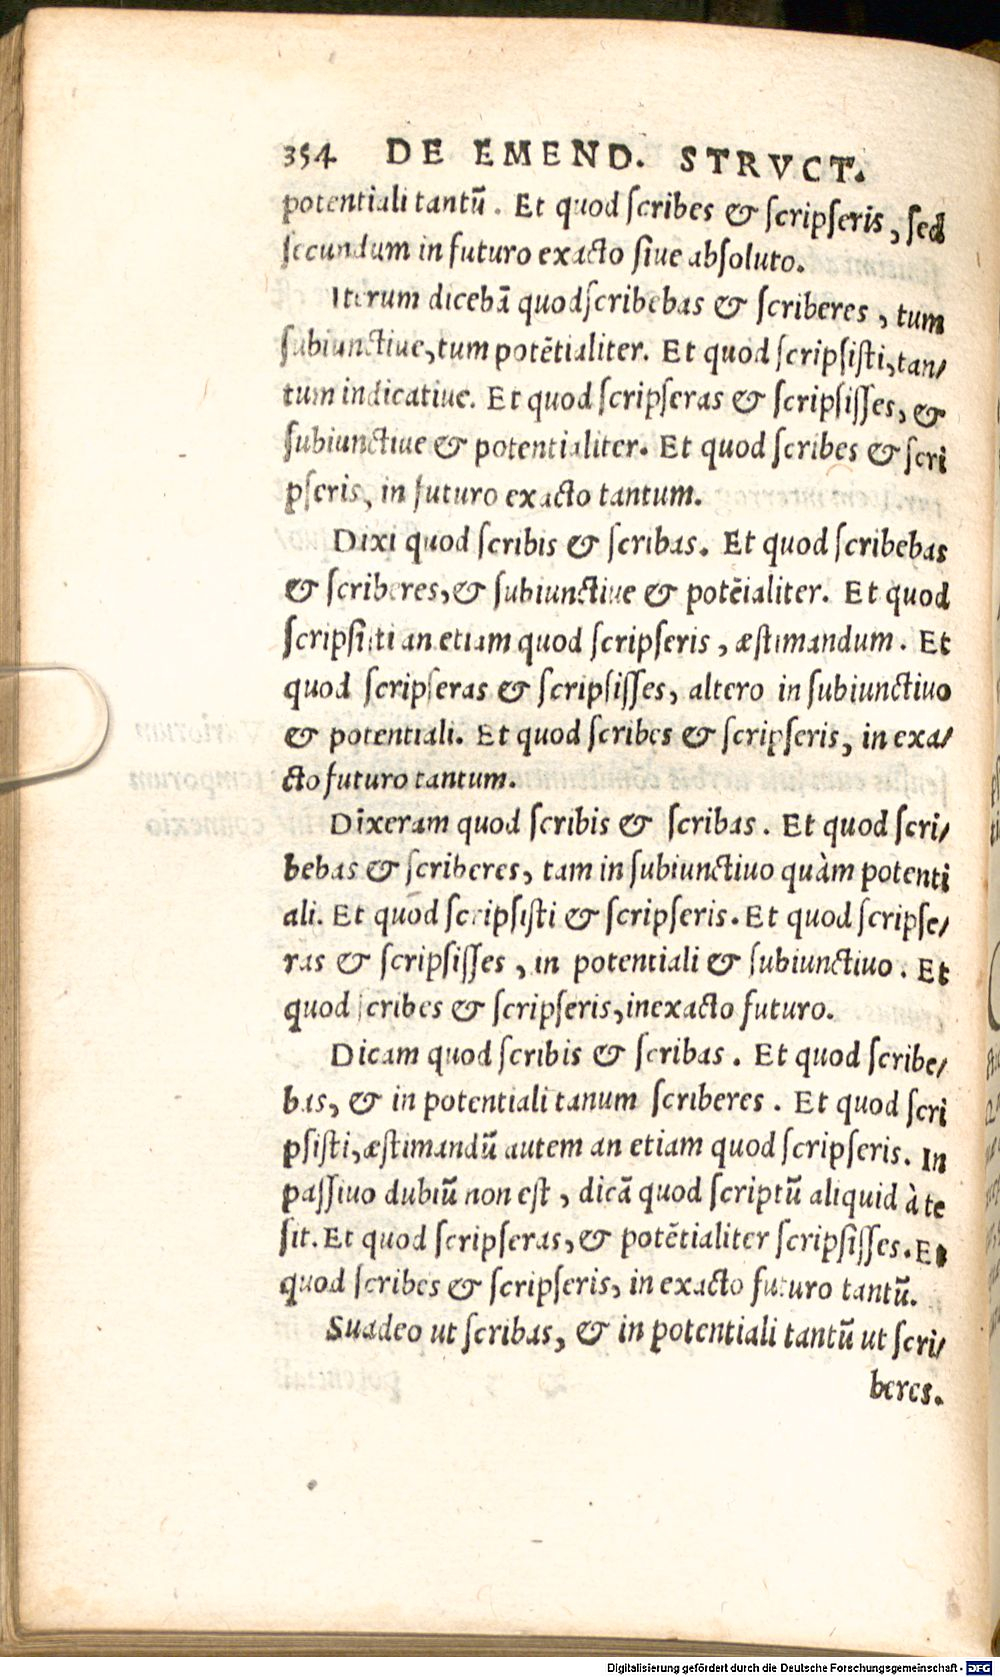 354 DE EMEND. STRVCT.
potentiali tantũ. Et quod ſcribes & ſcripſeris, ſed
ſecundum in futuro exacto ſiue abſoluto.
Iterum dicebã quod ſcribebas & ſcriberes, tum
ſubiunctiue, tum potẽtialiter. Et quod ſcripſiſti, tan/
tum indicatiue. Et quod ſcripſeras & ſcripſiſſes, &
ſubiunctiue & potentialiter. Et quod ſcribes & ſcri
pſeris, in futuro exacto tantum.
Dixi quod ſcribis & ſcribas. Et quod ſcribebas
& ſcriberes, & ſubiunctiue & potẽialiter. Et quod
ſcripſiſti an etiam quod ſcripſeris, æſtimandum. Et
quod ſcripſeras & ſcripſiſſes, altero in ſubiunctiuo
& potentiali. Et quod ſcribes & ſcripſeris, in exa/
cto futuro tantum.
Dixeram quod ſcribis & ſcribas. Et quod ſcri/
bebas & ſcriberes, tam in ſubiunctiuo quàm potenti
ali. Et quod ſcripſiſti & ſcripſeris. Et quod ſcripſe/
ras & ſcripſiſſes, in potentiali & ſubiunctiuo. Et
quod ſcribes & ſcripſeris, in exacto futuro.
Dicam quod ſcribis & ſcribas. Et quod ſcribe/
bas, & in potentiali tanum ſcriberes. Et quod ſcri
pſiſti, æſtimandũ autem an etiam quod ſcripſeris. In
paſſiuo dubiũ non eſt, dicã quod ſcriptũ aliquid à te
ſit. Et quod ſcripſeras, & potẽtialiter ſcripſiſſes. Et
quod ſcribes & ſcripſeris, in exacto futuro tantũ.
Suadeo ut ſcribas, & in potentiali tantũ ut ſcri/
beres.
Digitalisierung gefördert durch die Deutsche Forschungsgemeinschaft - DFG